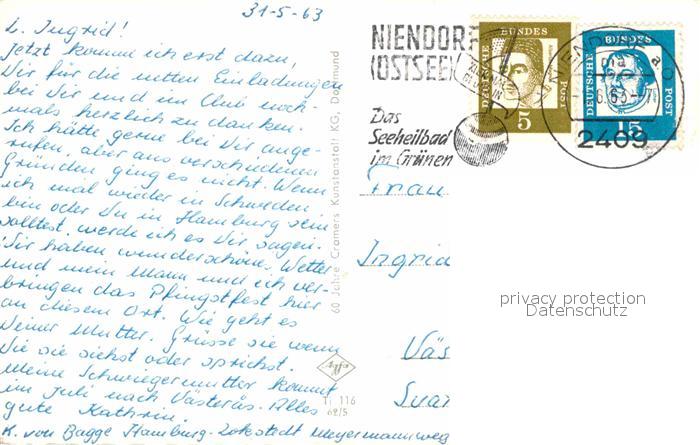 31-5-63
L. Ingrid!
Jetzt komme ich erst dazu,
Dir für die netten Einladungen
bei Dir und im Club noch-
mals herzlich zu danken.
Ich hätte gerne bei Dir ange-
rufen, aber aus verschiedenen
Gründen ging es nicht. Wenn
ich mal wieder in Schweden
bin oder Du in Hamburg sein
solltest, werde ich es Dir sagen.
Wir haben wunderschönes Wetter
und mein Mann und ich ver-
bringen das Pfingstfest hier
an diesem Ort. Wie geht es
Deiner Mutter. Grüsse sie wenn
Du sie siehst oder sprichst.
Meine Schwiegermutter kommt
im Juli nach Västerås. Alles
gute Kathrin.
K. von Bagge Hamburg-Lokstedt Meyermannweg
60 Jahre Cramers Kunstanstalt KG, Dortmund
Agfa
Ti 116
62/5
NIENDORF
(OSTSEE)
Das
Seeheilbad
im Grünen
DEUTSCHE
BUNDES
POST
5
DEUTSCHE
BUNDES
POST
15
NIENDORF
2409
Frau
Ingrid
Väs
Svar
privacy protection
Datenschutz